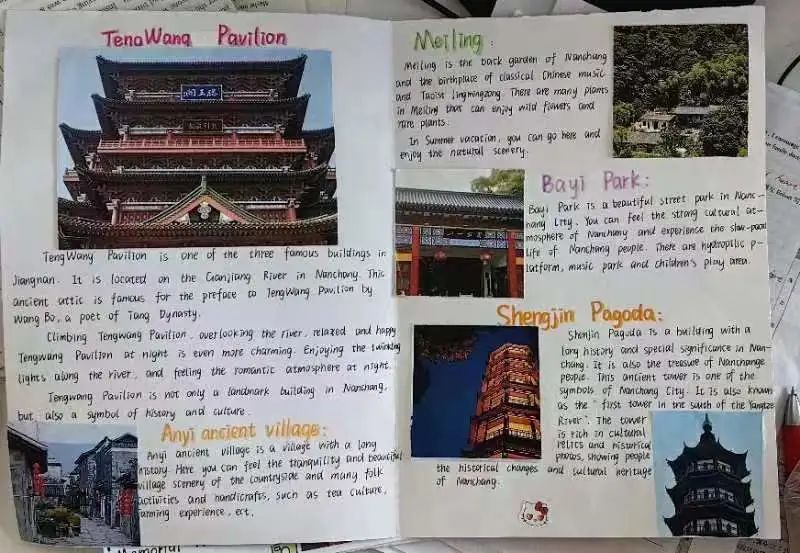 TengWang Pavilion
滕王阁
TengWang Pavilion is one of the three famous buildings in
Jiangnan. It is located on the Ganjiang River in Nanchang. This
ancient attic is famous for the preface to TengWang Pavilion by
Wang Bo, a poet of Tang Dynasty.
Climbing Tengwang Pavilion, overlooking the river, relaxed and happy
Tengwang Pavilion at night is even more charming. Enjoying the twinkling
lights along the river, and feeling the romantic atmosphere at night.
Tengwang Pavilion is not only a landmark building in Nanchang,
but also a symbol of history and culture.
Anyi ancient village:
Anyi ancient village is a village with a long
history. Here you can feel the tranquility and beautiful
village scenery of the countryside and many folk
activities and handicrafts, such as tea culture,
farming experience, ect.
Meiling:
Meiling is the back garden of Nanchang
and the birthplace of classical Chinese music
and Taoist Lingmingzong. There are many plants
in Meiling that can enjoy wild flowers and
rare plants.
In Summer vacation, you can go here and
enjoy the natural scenery.
Bayi Park:
Bayi Park is a beautiful street park in Nanc-
hang City. You can feel the strong cultural at-
mosphere of Nanchang and experience the slow-paced
life of Nanchang people. There are hydrophilic p-
latform, music park and children's play area.
Shengjin Pagoda:
Shenjin Pagoda is a building with a
long history and special significance in Nan-
chang. It is also the treasure of Nanchange
people. This ancient tower is one of the
symbols of Nanchang City. It is also known
as the "first tower in the south of the Yangtze
River". The tower
is rich in cultural
relics and historical
photos, showing people
the historical changes and cultural heritage
of Nanchang.